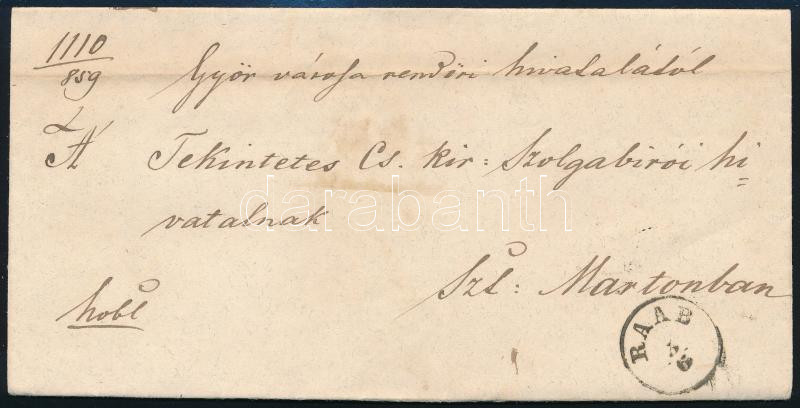 1110
859
Győr városa rendőri hivatalától
A
Tekintetes Cs. kir: Szolgabirói hi=
vatalnak
Szt: Martonban
hobl
RAAB
darabanth